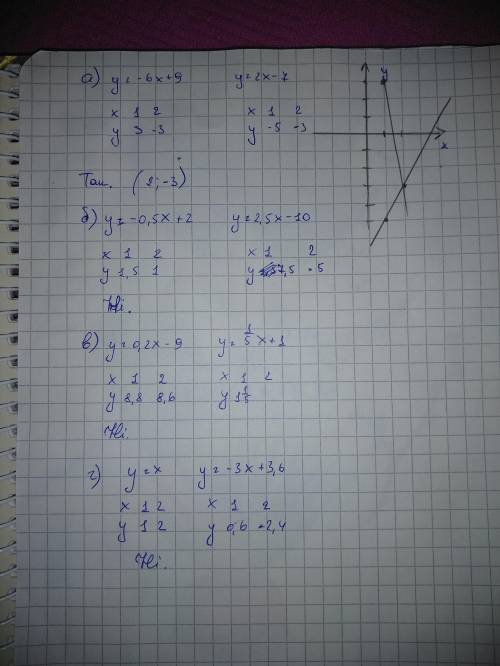 а) y = -6x+9 y=2x-7
x 1 2 x 1 2
y 3 -3 y -5 -3
y
x
Так. (2;-3)
б) y = -0,5x+2 y=2,5x-10
x 1 2 x 1 2
y 1,5 1 y 7,5 -5
Ні.
в) y=0,2x-9 y=1/5x+1
x 1 2 x 1 2
y 8,8 8,6 y 1 1/5
Ні.
г) y=x y=-3x+3,6
x 1 2 x 1 2
y 1 2 y 0,6 -2,4
Ні.